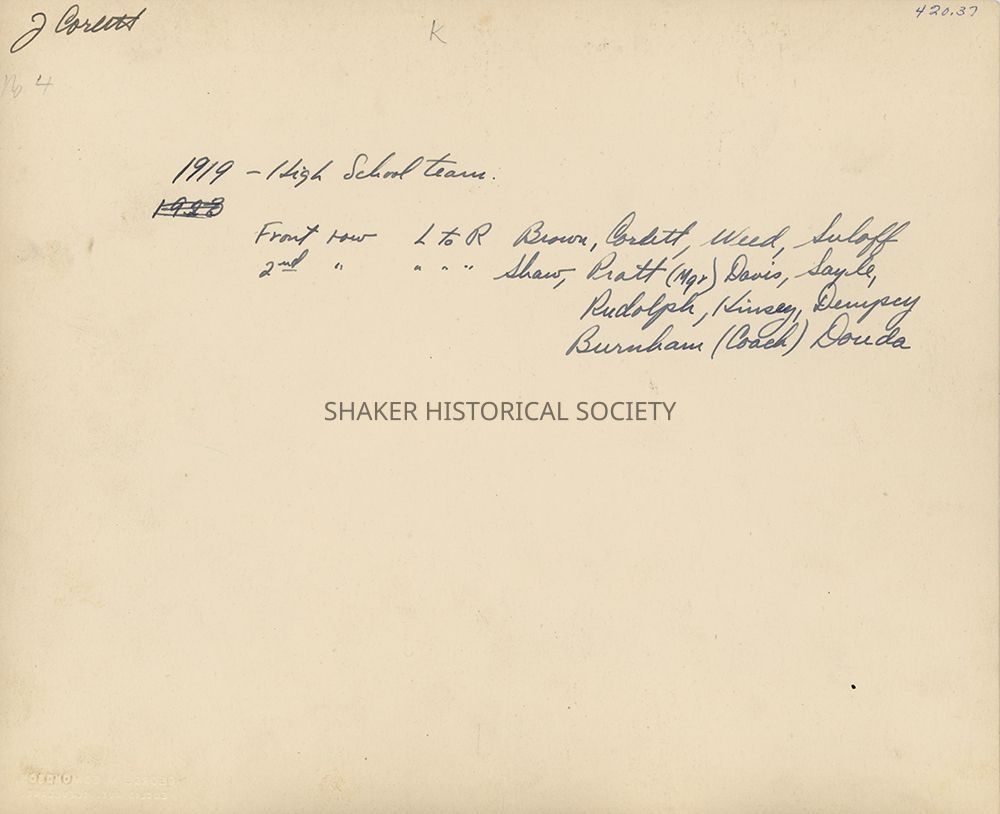 J Corlett
K
420.37
No 4
1919 - High School team.
1923
Front row L to R Brown, Corlett, Weed, Suloff
2nd " " " " Shaw, Pratt (Mgr) Davis, Sayle,
Rudolph, Kinsey, Dempsey
Burnham (Coach) Douda
SHAKER HISTORICAL SOCIETY